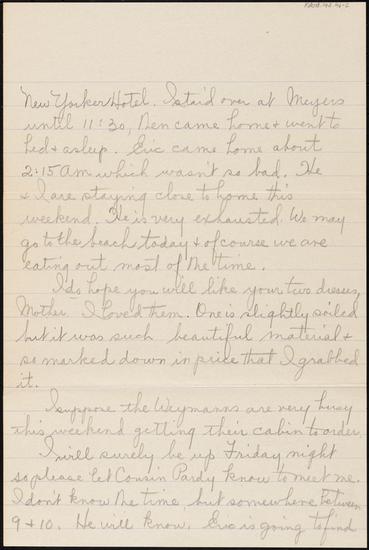 New Yorker Hotel. I staid over at Meyers
until 11:30, then came home & went to
bed & asleep. Eric came home about
2:15 AM which wasn't so bad. He
& I are staying close to home this
weekend. He is very exhausted. We may
go to the beach today & of course we are
eating out most of the time.
I do hope you will like your two dresses,
Mother - I loved them. One is slightly soiled
but it was such beautiful material &
so marked down in price that I grabbed
it.
I suppose the Weymanns are very busy
this weekend getting their cabin to order.
I will surely be up Friday night
so please let Cousin Pardy know to meet me.
I don't know the time, but somewhere between
9 & 10. He will know. Eric is going to find